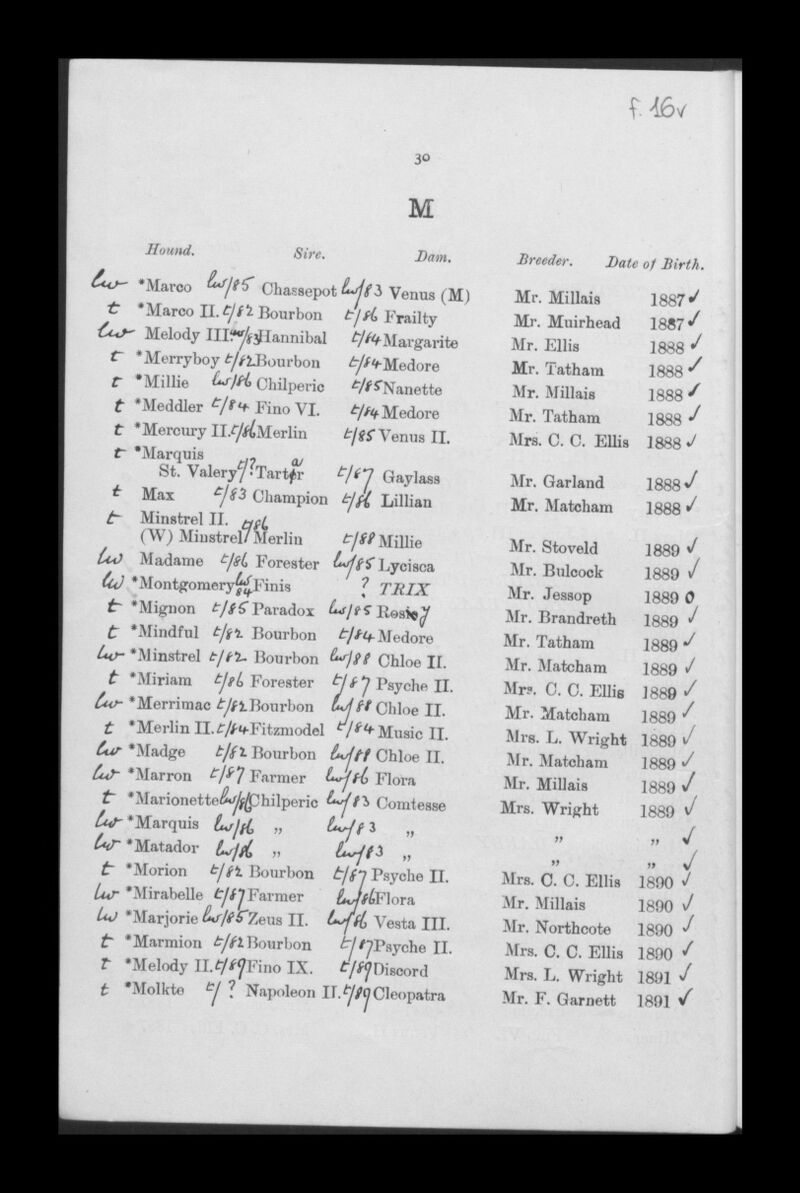 f. 16v
30
M
Hound. Sire. Dam. Breeder. Date of Birth.
lw *Marco lw/85 Chassepot lw/83 Venus (M) Mr. Millais 1887 ✓
t *Marco II. t/82 Bourbon t/86 Frailty Mr. Muirhead 1887 ✓
lw Melody III. lw/83 Hannibal t/84 Margarite Mr. Ellis 1888 ✓
t *Merryboy t/82 Bourbon t/84 Medore Mr. Tatham 1888 ✓
t *Millie lw/86 Chilperic t/85 Nanette Mr. Millais 1888 ✓
t *Meddler t/84 Fino VI. t/84 Medore Mr. Tatham 1888 ✓
t *Mercury II. t/86 Merlin t/85 Venus II. Mrs. C. C. Ellis 1888 ✓
t *Marquis
St. Valery t/? Tarter a t/87 Gaylass Mr. Garland 1888 ✓
t Max t/83 Champion t/86 Lillian Mr. Matcham 1888 ✓
t Minstrel II.
(W) Minstrel t/86 Merlin t/88 Millie Mr. Stoveld 1889 ✓
lw Madame t/86 Forester lw/85 Lycisca Mr. Bulcock 1889 ✓
lw *Montgomery lw/84 Finis ? TRIX Mr. Jessop 1889 o
t *Mignon t/85 Paradox lw/85 Rosie y Mr. Brandreth 1889 ✓
t *Mindful t/82 Bourbon t/84 Medore Mr. Tatham 1889 ✓
lw *Minstrel t/82 Bourbon lw/88 Chloe II. Mr. Matcham 1889 ✓
t *Miriam t/86 Forester t/87 Psyche II. Mrs. C. C. Ellis 1889 ✓
lw *Merrimac t/82 Bourbon lw/88 Chloe II. Mr. Matcham 1889 ✓
t *Merlin II. t/84 Fitzmodel t/84 Music II. Mrs. L. Wright 1889 ✓
lw *Madge t/82 Bourbon lw/88 Chloe II. Mr. Matcham 1889 ✓
lw *Marron t/87 Farmer lw/86 Flora Mr. Millais 1889 ✓
t *Marionette lw/86 Chilperic lw/83 Comtesse Mrs. Wright 1889 ✓
lw *Marquis lw/86 „ lw/83 „ „ „ ✓
lw *Matador lw/86 „ lw/83 „ „ „ ✓
t *Morion t/82 Bourbon t/87 Psyche II. Mrs. C. C. Ellis 1890 ✓
lw *Mirabelle t/87 Farmer lw/86 Flora Mr. Millais 1890 ✓
lw *Marjorie lw/85 Zeus II. lw/86 Vesta III. Mr. Northcote 1890 ✓
t *Marmion t/82 Bourbon t/87 Psyche II. Mrs. C. C. Ellis 1890 ✓
t *Melody II. t/89 Fino IX. t/89 Discord Mrs. L. Wright 1891 ✓
t *Molkte t/? Napoleon II. t/89 Cleopatra Mr. F. Garnett 1891 ✓